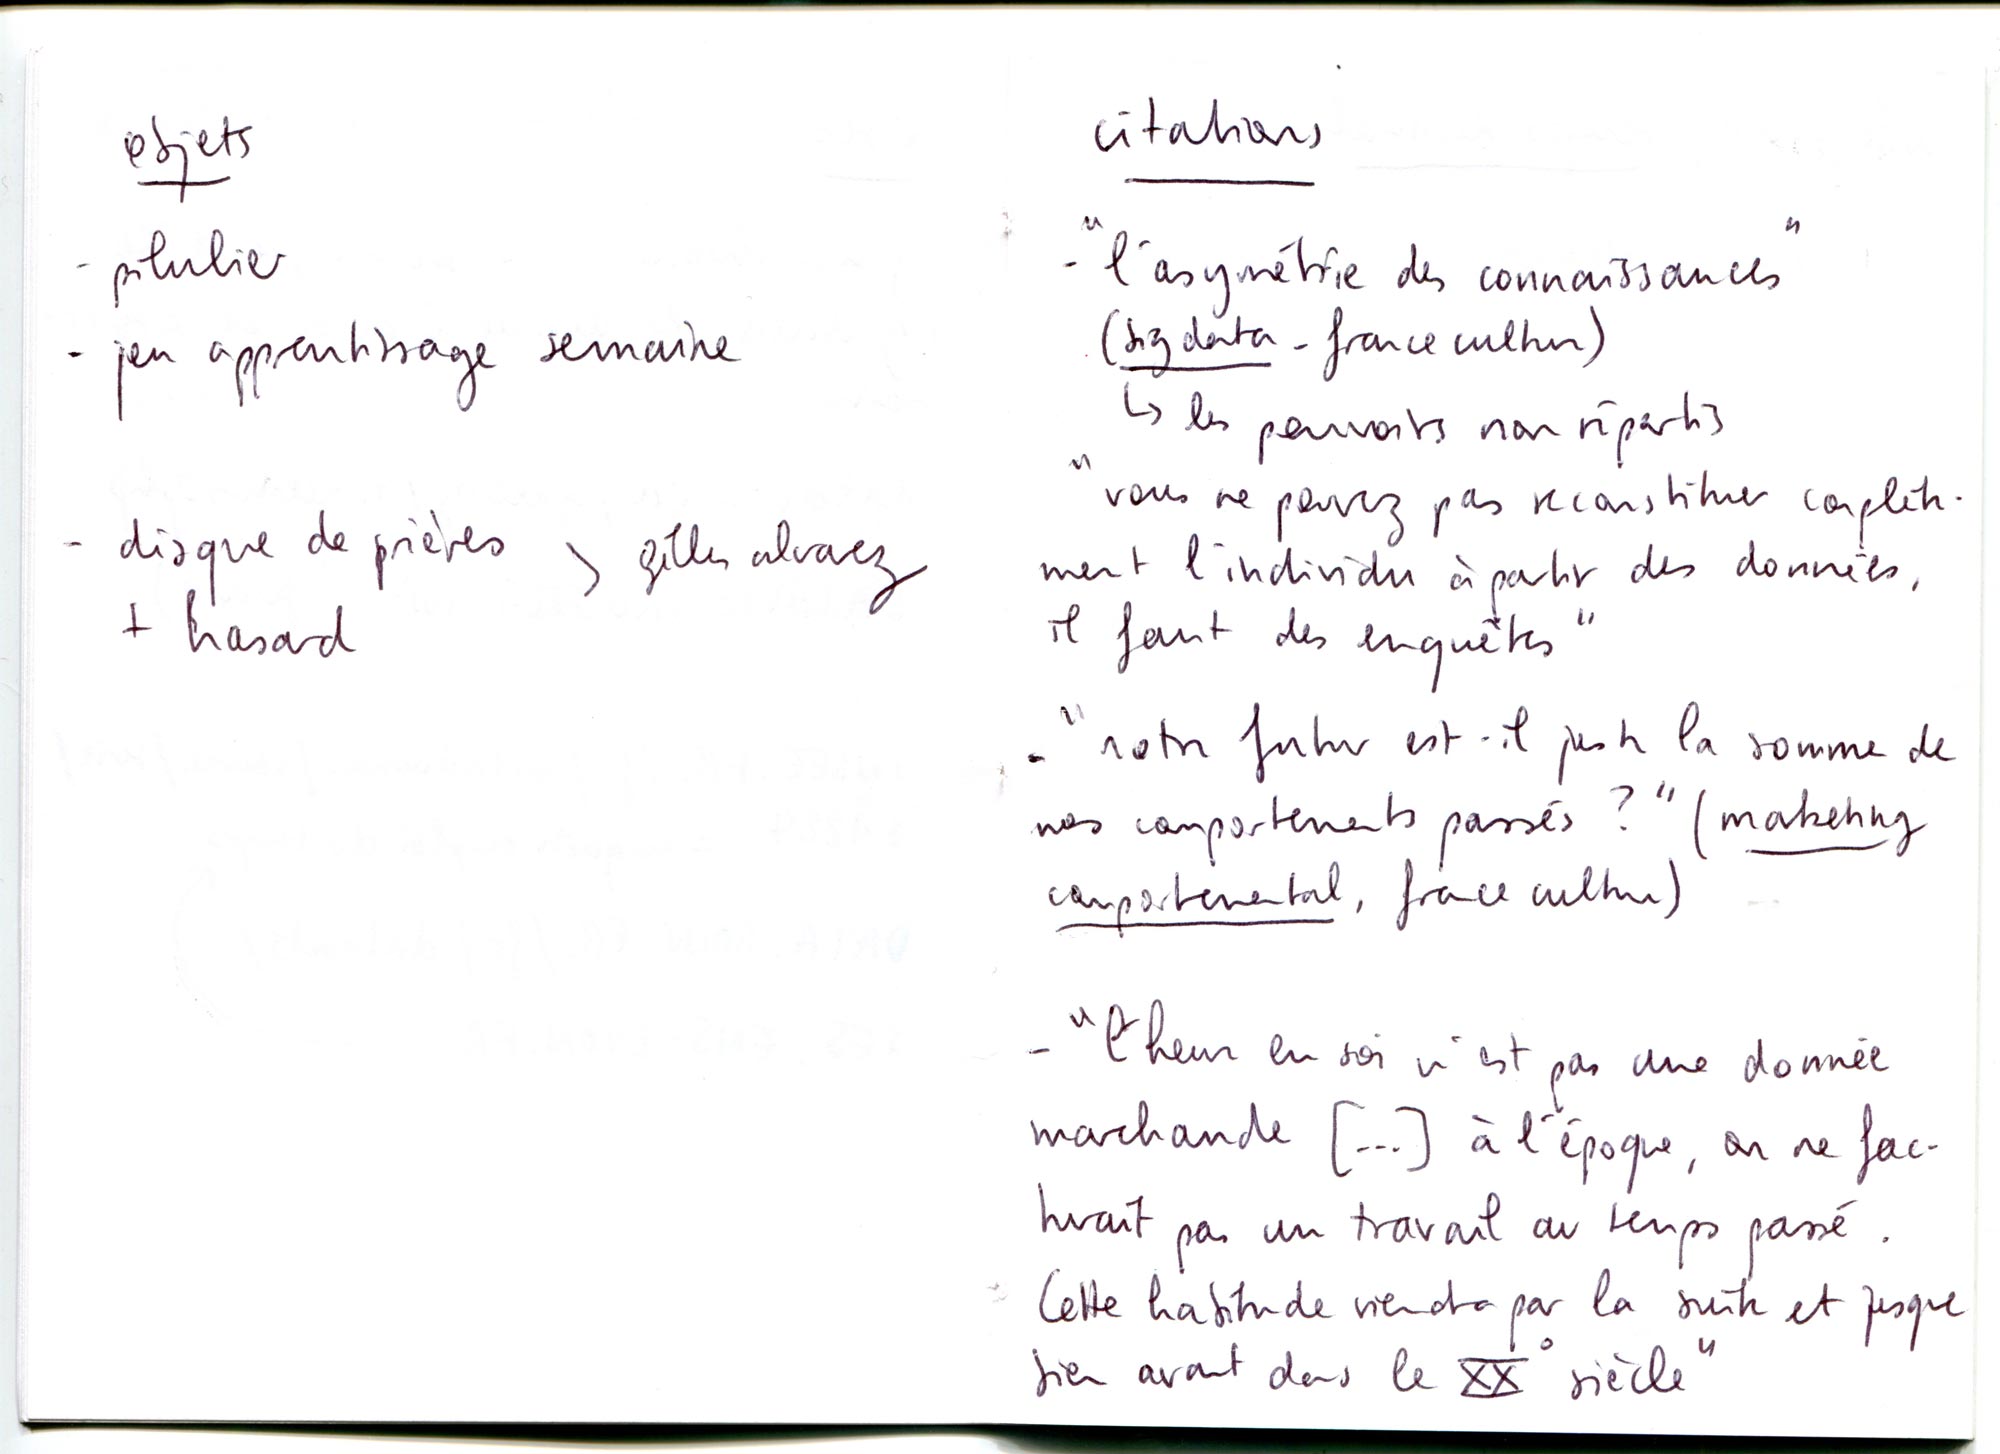 objets
- pilulier
- jeu apprentissage semaine
- disque de prières > gilles alvarez
+ hasard
citations
- "l'asymétrie des connaissances"
(big data - france culture)
↳ les pouvoirs non répartis
"vous ne pouvez pas reconstituer complète-
ment l'individu à partir des données,
il faut des enquêtes"
- "notre futur est-il juste la somme de
nos comportements passés ?" (marketing
comportemental, france culture)
- "L'heure en soi n'est pas une donnée
marchande [...] à l'époque, on ne fac-
turait pas un travail au temps passé.
Cette habitude viendra par la suite et jusque
bien avant dans le XX° siècle"